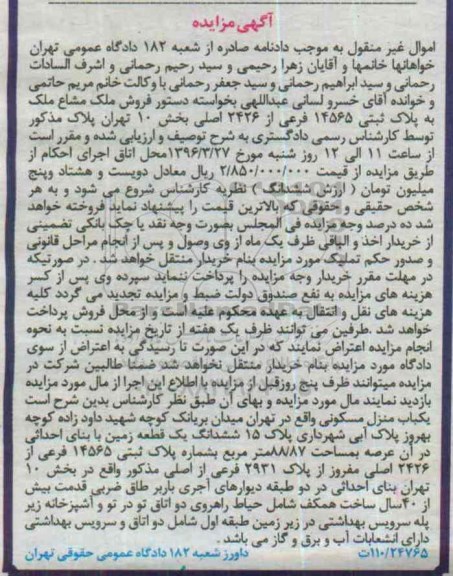 آگهی مزایده
اموال غیر منقول به موجب دادنامه صادره از شعبه ۱۸۲ دادگاه عمومی تهران
خواهانها خانمها و آقایان زهرا رحیمی و سید رحیم رحمانی و اشرف السادات
رحمانی و سید ابراهیم رحمانی و سید جعفر رحمانی با وکالت خانم مریم حاتمی
و خوانده آقای خسرو لسانی عبداللهی بخواسته دستور فروش ملک مشاع ملک
به پلاک ثبتی ۱۴۵۶۵ فرعی از ۲۴۲۶ اصلی بخش ۱۰ تهران پلاک مذکور
توسط کارشناس رسمی دادگستری به شرح توصیف و ارزیابی شده و مقرر است
از ساعت ۱۱ الی ۱۲ روز شنبه مورخ ۱۳۹۶/۳/۲۷محل اتاق اجرای احکام از
طریق مزایده از قیمت ۲/۸۵۰/۰۰۰/۰۰۰ ریال معادل دویست و هشتاد وپنج
میلیون تومان ( ارزش ششدانگ ) نظریه کارشناس شروع می شود و به هر
شخص حقیقی و حقوقی که بالاترین قیمت را پیشنهاد نماید فروخته خواهد
شد ده درصد وجه مزایده فی المجلس بصورت وجه نقد یا چک بانکی تضمینی
از خریدار اخذ و الباقی ظرف یک ماه از وی وصول و پس از انجام مراحل قانونی
و صدور حکم تملیک مورد مزایده بنام خریدار منتقل خواهد شد . در صورتیکه
در مهلت مقرر خریدار وجه مزایده را پرداخت ننماید سپرده وی پس از کسر
هزینه های مزایده به نفع صندوق دولت ضبط و مزایده تجدید می گردد کلیه
هزینه های نقل و انتقال به عهده محکوم علیه است و از محل فروش پرداخت
خواهد شد .طرفین می توانند ظرف یک هفته از تاریخ مزایده نسبت به نحوه
انجام مزایده اعتراض نمایند که در این صورت تا رسیدگی به اعتراض از سوی
دادگاه مورد مزایده بنام خریدار منتقل نخواهد شد ضمنا طالبین شرکت در
مزایده میتوانند ظرف پنج روزقبل از مزایده با اطلاع این اجرا از مال مورد مزایده
بازدید نمایند مال مورد مزایده و بهای آن طبق نظر کارشناس بدین شرح است
یکباب منزل مسکونی واقع در تهران میدان بریانک کوچه شهید داود زاده کوچه
بهروز پلاک آبی شهرداری پلاک ۱۵ ششدانگ یک قطعه زمین با بنای احداثی
در آن عرصه بمساحت ۸۸۸۷متر مربع بشماره پلاک ثبتی ۱۴۵۶۵ فرعی از
۲۴۲۶ اصلی مفروز از پلاک ۲۹۳۱ فرعی از اصلی مذکور واقع در بخش ۱۰
تهران بنای احداثی در دو طبقه دیوارهای آجری باربر طاق ضربی قدمت بیش
از ۴۰سال ساخت همکف شامل حیاط راهروی دو اتاق تو در تو و آشپزخانه زیر
پله سرویس بهداشتی در زیر زمین طبقه اول شامل دو اتاق و سرویس بهداشتی
دارای انشعابات آب و برق و گاز می باشد .
۱۱۰/۲۴۷۶۵ت داورز شعبه ۱۸۲ دادگاه عمومی حقوقی تهران